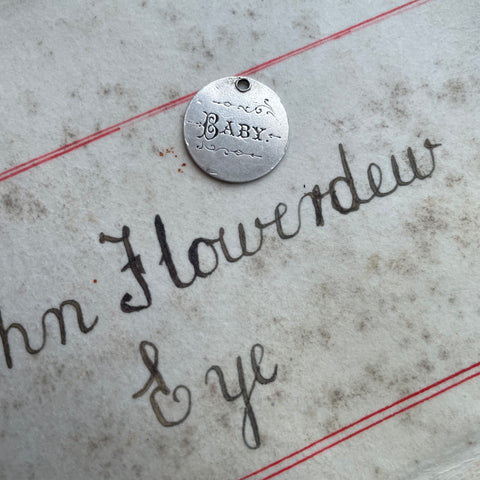 BABY.
hn Flowerdew
Eye